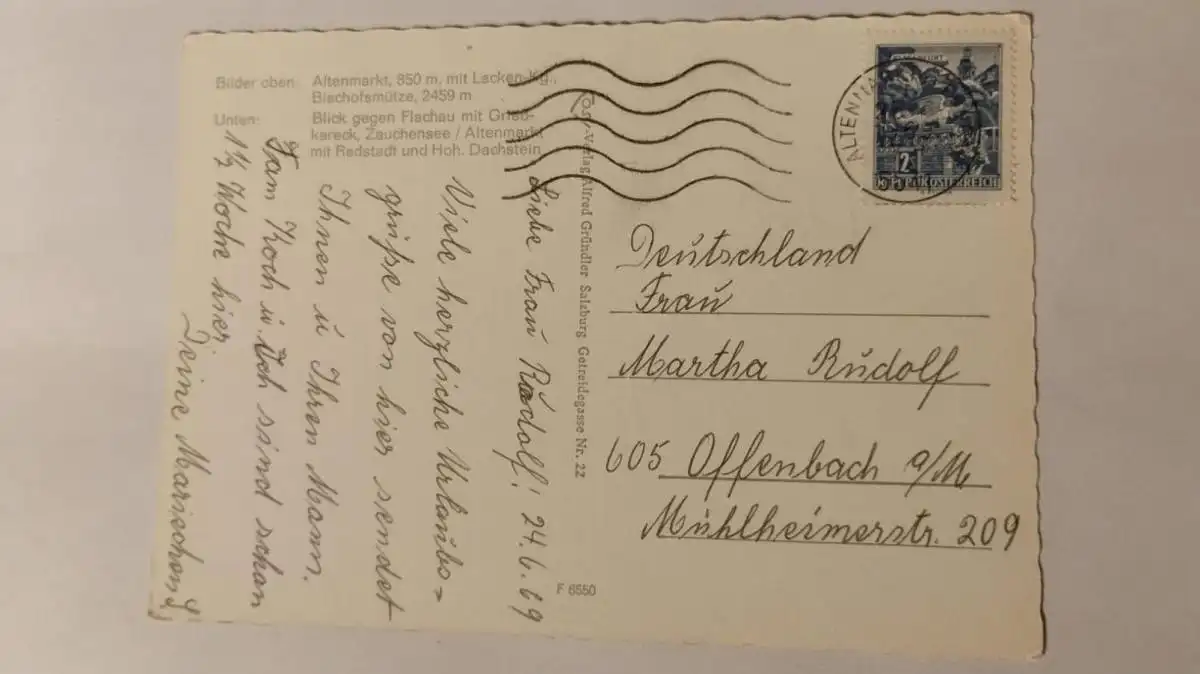 Bilder oben: Altenmarkt, 850 m, mit Lacken-Kg.,
Bischofsmütze, 2459 m
Unten: Blick gegen Flachau mit Grieß-
kareck, Zauchensee / Altenmarkt
mit Radstadt und Hoh. Dachstein
Liebe Frau Rudolf! 24.6.69
Viele herzliche Urlaubs=
grüße von hier sendet
Ihnen u Ihren Mann.
Fam Koch u. Ich sind schon
1½ Woche hier
Deine Marischon
Verlag Alfred Gründler Salzburg Getreidegasse Nr. 22
F 6550
ALTENMA
2
REPUBLIK ÖSTERREICH
Deutschland
Frau
Martha Rudolf
605 Offenbach a/M
Mühlheimerstr. 209